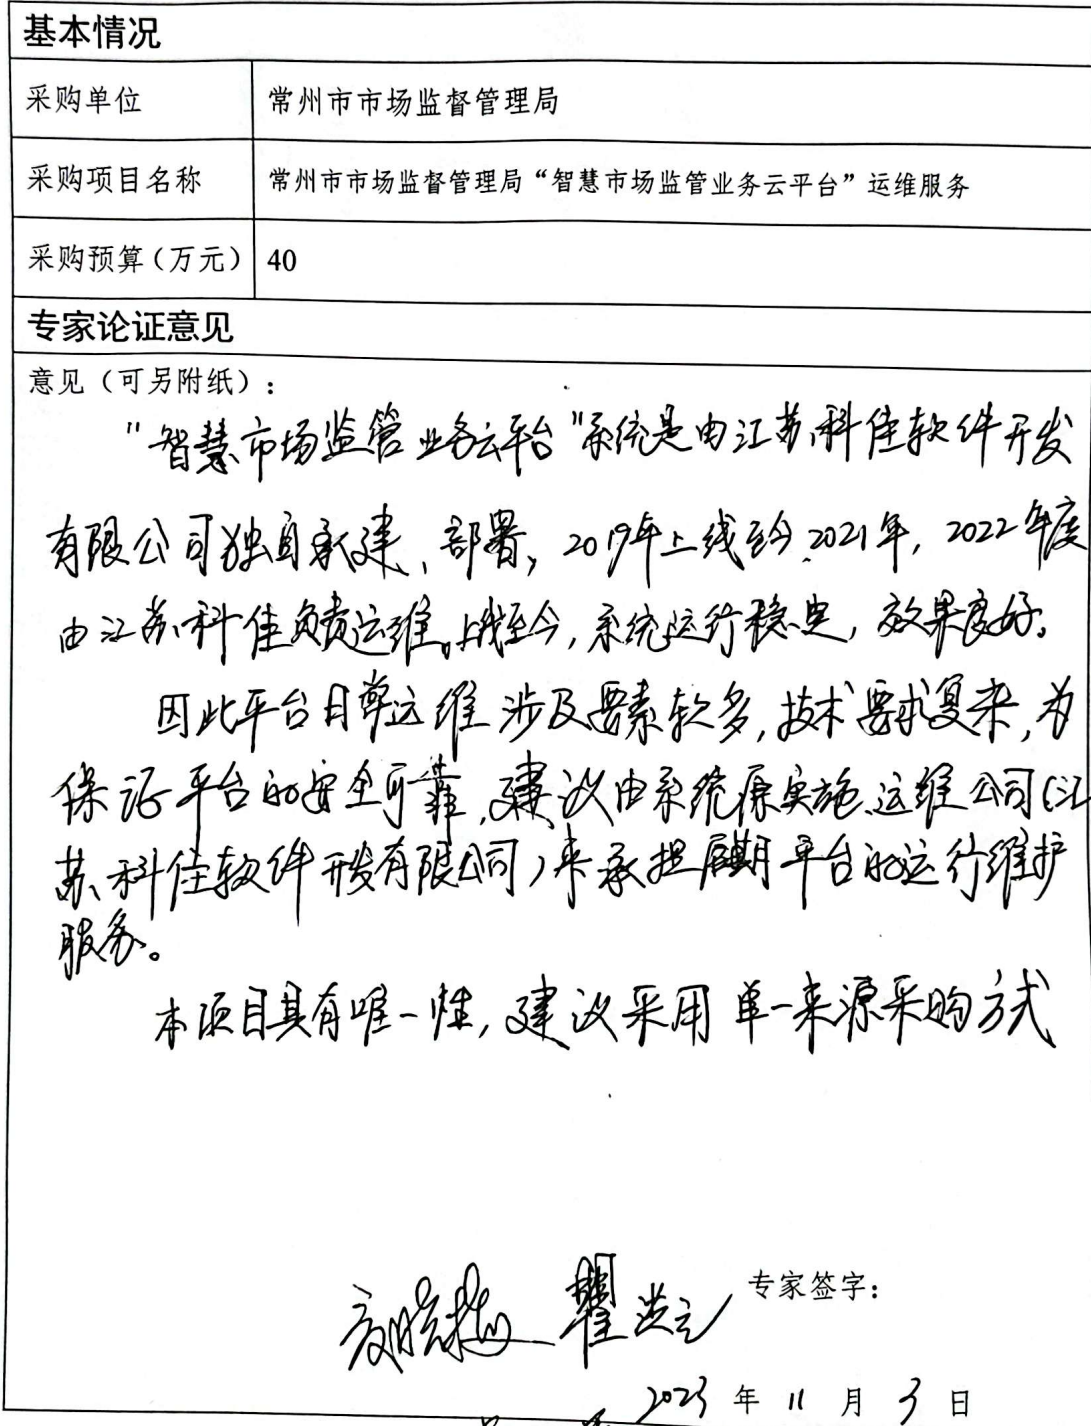 基本情况
采购单位 常州市市场监督管理局
采购项目名称 常州市市场监督管理局“智慧市场监管业务云平台”运维服务
采购预算(万元) 40
专家论证意见
意见（可另附纸）：
"智慧市场监管业务云平台"系统是由江苏科佳软件开发
有限公司独自承建、部署，2019年上线至今2021年，2022年度
由江苏科佳负责运维。上线至今，系统运行稳定，效果良好。
因此平台日常运维涉及要素较多，技术要求复杂，为
保证平台的安全可靠，建议由系统原实施、运维公司（江
苏科佳软件开发有限公司）来承担后期平台的运行维护
服务。
本项目具有唯一性，建议采用单一来源采购方式
专家签字：
2023 年 11 月 3 日